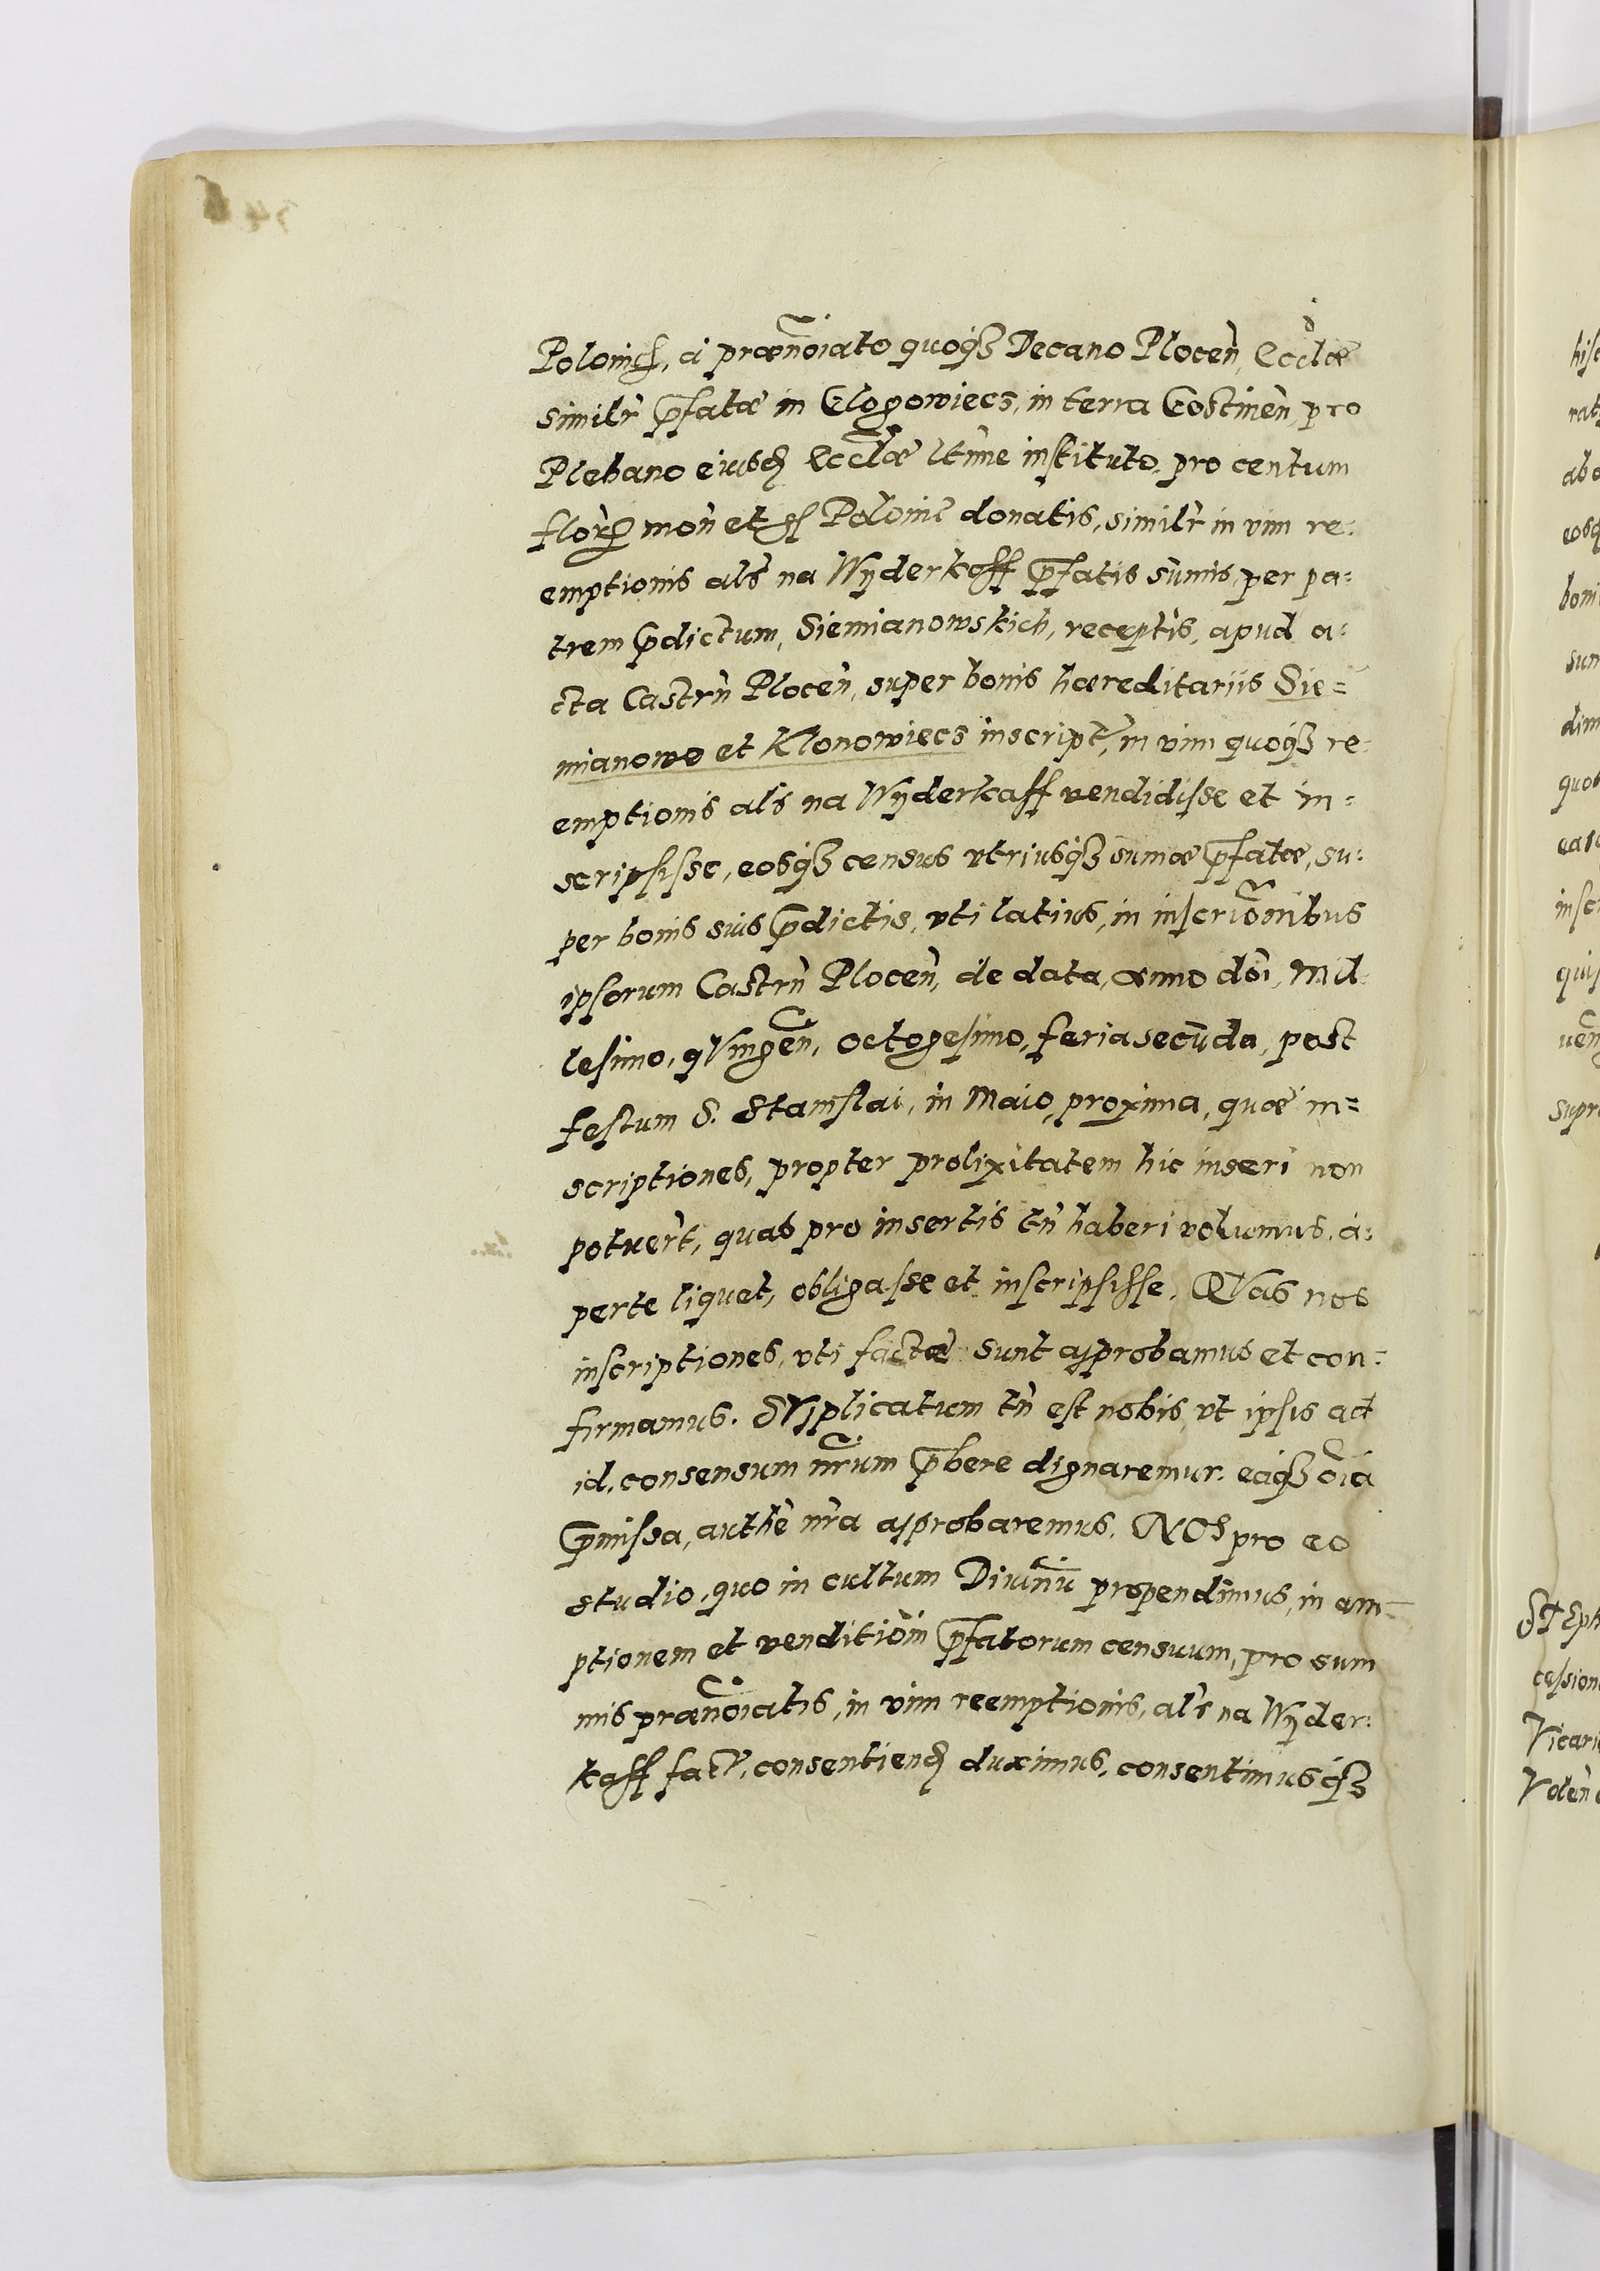 Polonical, à prænõiato quoq3 Decano Plocen̄, Ecclæ
similr̀ p̄fatæ in Glogowiecz, in terra Gostinen̄, pro
Plebano eiusd Ecclæ ltime instituto, pro centum
flor̀ mon̄ et Polonicȩ donatis, similr̀ in vim re:
emptionis als̀ na Wyderkaff p̄fatis sum̄is, per pa:
trem p̄dictum, Siemianowskich, receptis, apud a:
cta Castrn̄ Plocen̄, super bonis hæreditariis Sie=
mianowo et Klonowiecz inscript, in vim quoq3 re:
emptionis als̀ na Wyderkaff vendidisse et in=
scripsisse, eosq3 census vtriusq3 sum̄æ p̄fatæ, su:
per bonis suis p̄dictis, vti latius, in inscripōnibus
ipsorum Castrn̄ Plocen̄, de data, anno dōi, Mil
lesimo, qVingen̄, octogesimo, feria secūda, post
festum S. Stanislai, in Maio, proxima, quæ in=
scriptiones, propter prolixitatem hic inseri non
potuer̀t, quas pro insertis tn̄ haberi volumus, a:
perte liquet, obligasse et inscripsisse. QVas nos
inscriptiones, vti factæ sunt approbamus et con:
firmamus. SVpplicatum tn̄ est nobis, vt ipsis ad
id, consensum nr̄um p̄bere dignaremur. eaq3 oīa
p̄missa, authe nr̄a approbaremus. NOS pro eo
studio, quo in cultum Diuinū propendimus, in em=
ptionem et venditiōm p̄fatorum censuum, pro sum
mis prænōiatis, in vim reemptionis, als̀ na Wyder:
kaff fact, consentiend duximus, consentimusq3